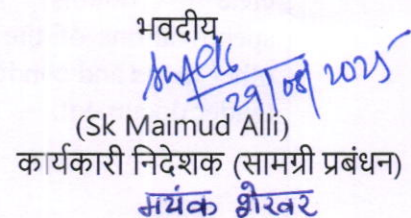 भवदीय
29/08/2025
(Sk Maimud Alli)
कार्यकारी निदेशक (सामग्री प्रबंधन)
मयंक शेखर